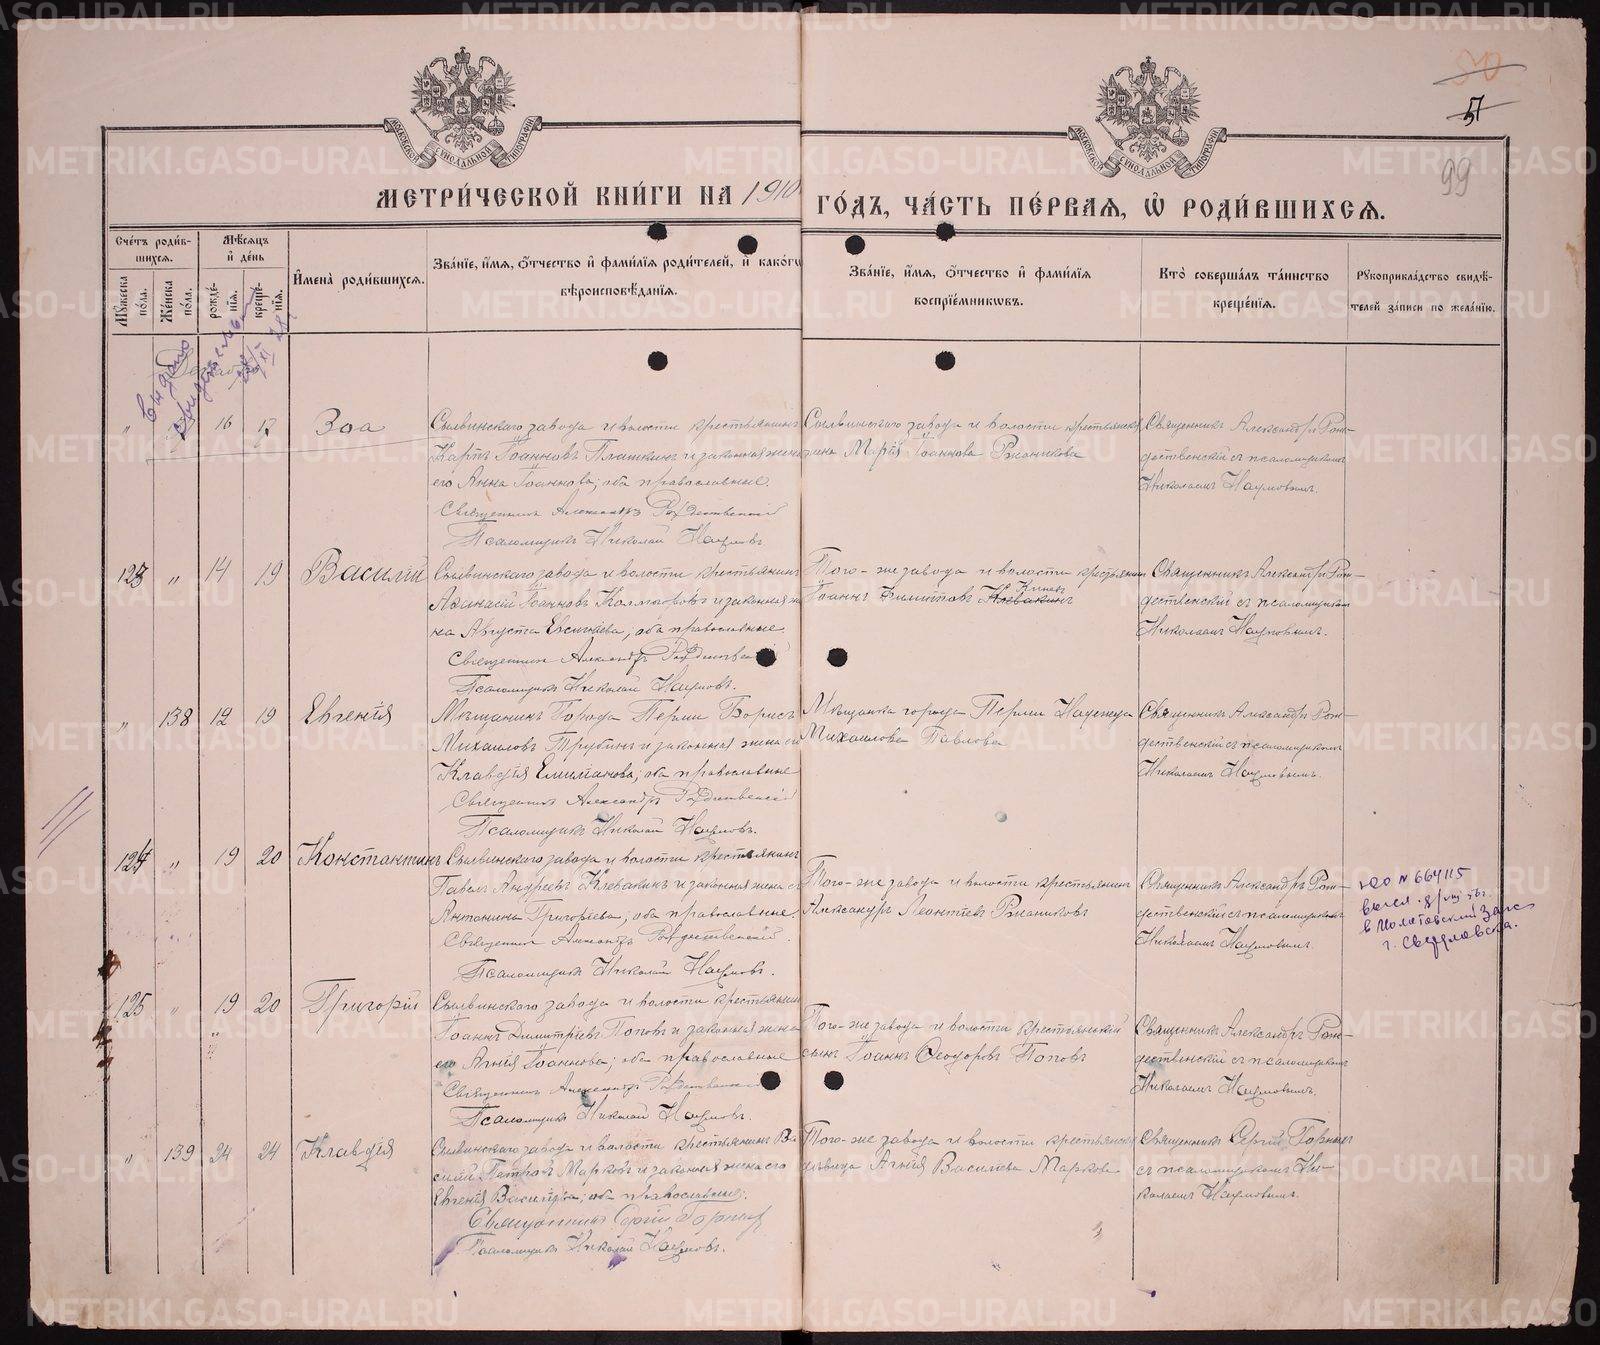 50
51
99
МОСКОВСКОЙ СѴНОДАЛЬНОЙ ТИПОГРАФІИ
МОСКОВСКОЙ СѴНОДАЛЬНОЙ ТИПОГРАФІИ
МЕТРИ́ЧЕСКОЙ КНИ́ГИ НА 1910 ГО́ДЪ, ЧА́СТЬ ПЕ́РВАѦ, Ѽ РОДИ́ВШИХСѦ.
Сче́тъ роди́в-
шихсѧ.
Мꙋ́жеска по́ла.
Же́нска по́ла.
Мѣ́сѧцъ и҆ де́нь
рожде́-нїѧ.
креще́-нїѧ.
И҆мена̀ роди́вшихсѧ.
Зва́нїе, и҆́мѧ, ѻ҆́тчество и҆ фами́лїѧ роди́телей, и҆ како́гѡ
вѣроисповѣ́данїѧ.
Зва́нїе, и҆́мѧ, ѻ҆́тчество и҆ фами́лїѧ
воспрїе́мникѡвъ.
Кто̀ соверша́лъ та́инство
креще́нїѧ.
Рꙋкоприкла́дство свидѣ́-
телей за́писи по жела́нїю.
Выдано
" 16 17 Зоа
Сылвинскаго завода и волости крестьянинъ
Карпъ Іоанновъ Плашкинъ и законная жена
его Анна Іоаннова; оба православные.
Священникъ Александръ Рождественскій
Псаломщикъ Николай Наумовъ.
Сылвинскаго завода и волости крестьянка
Марія Іоаннова Ржаникова
Священникъ Александръ Рож-
дественскій съ псаломщикомъ
Николаемъ Наумовымъ.
123 " 14 19 Василій
Сылвинскаго завода и волости крестьянинъ
Аѳанасій Іоанновъ и законная же
на Августа; оба православные
Священникъ Александръ Рождественскій
Псаломщикъ Николай Наумовъ.
Того-же завода и волости крестьянинъ
Іоаннъ Филипповъ
Священникъ Александръ Рож-
дественскій съ псаломщикомъ
Николаемъ Наумовымъ.
" 138 12 19 Евгенія
Мѣщанинъ Города Перми Борисъ
Михаиловъ Трубинъ и законная жена его
Клавдія; оба православные
Священникъ Александръ Рождественскій
Псаломщикъ Николай Наумовъ.
Мѣщанка города Перми Надежда
Михаилова Павлова
Священникъ Александръ Рож-
дественскій съ псаломщикомъ
Николаемъ Наумовымъ.
124 " 19 20 Константинъ
Сылвинскаго завода и волости крестьянинъ
Павелъ Андреевъ Клевакинъ и законная жена его
Антонина Григоріева; оба православные.
Священникъ Александръ Рождественскій.
Псаломщикъ Николай Наумовъ.
Того-же завода и волости крестьянинъ
Александръ Леонтіевъ Ржаниковъ
Священникъ Александръ Рож-
дественскій съ псаломщикомъ
Николаемъ Наумовымъ.
ЮО № 664115
в Молотовский Загс
г. Свердловска.
125 " 19 20 Григорій
Сылвинскаго завода и волости крестьянинъ
Іоаннъ Димитріевъ Поповъ и законная жена
его Агнія Іоаннова; оба православные
Священникъ Александръ Рождественскій
Псаломщикъ Николай Наумовъ.
Того-же завода и волости крестьянскій
сынъ Іоаннъ Ѳеодоровъ Поповъ
Священникъ Александръ Рож-
дественскій съ псаломщикомъ
Николаемъ Наумовымъ.
" 139 24 24 Клавдія
Сылвинскаго завода и волости крестьянинъ Ва-
силій Петровъ Марковъ и законная жена его
Евгенія; оба православные.
Священникъ Сергій Горныхъ
Псаломщикъ Николай Наумовъ.
Того-же завода и волости крестьянская
дѣвица Агнія Василіева Маркова
Священникъ Сергій Горныхъ
съ псаломщикомъ Ни-
колаемъ Наумовымъ.
METRIKI.GASO-URAL.RU